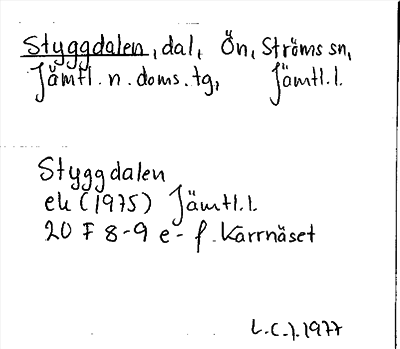 Styggdalen, dal, Ön, Ströms sn,
Jämtl. n. doms. tg, Jämtl. l.
Styggdalen
ek (1975) Jämtl. l.
20 F 8-9 e-f. Karrnäset
L.C.J. 1977